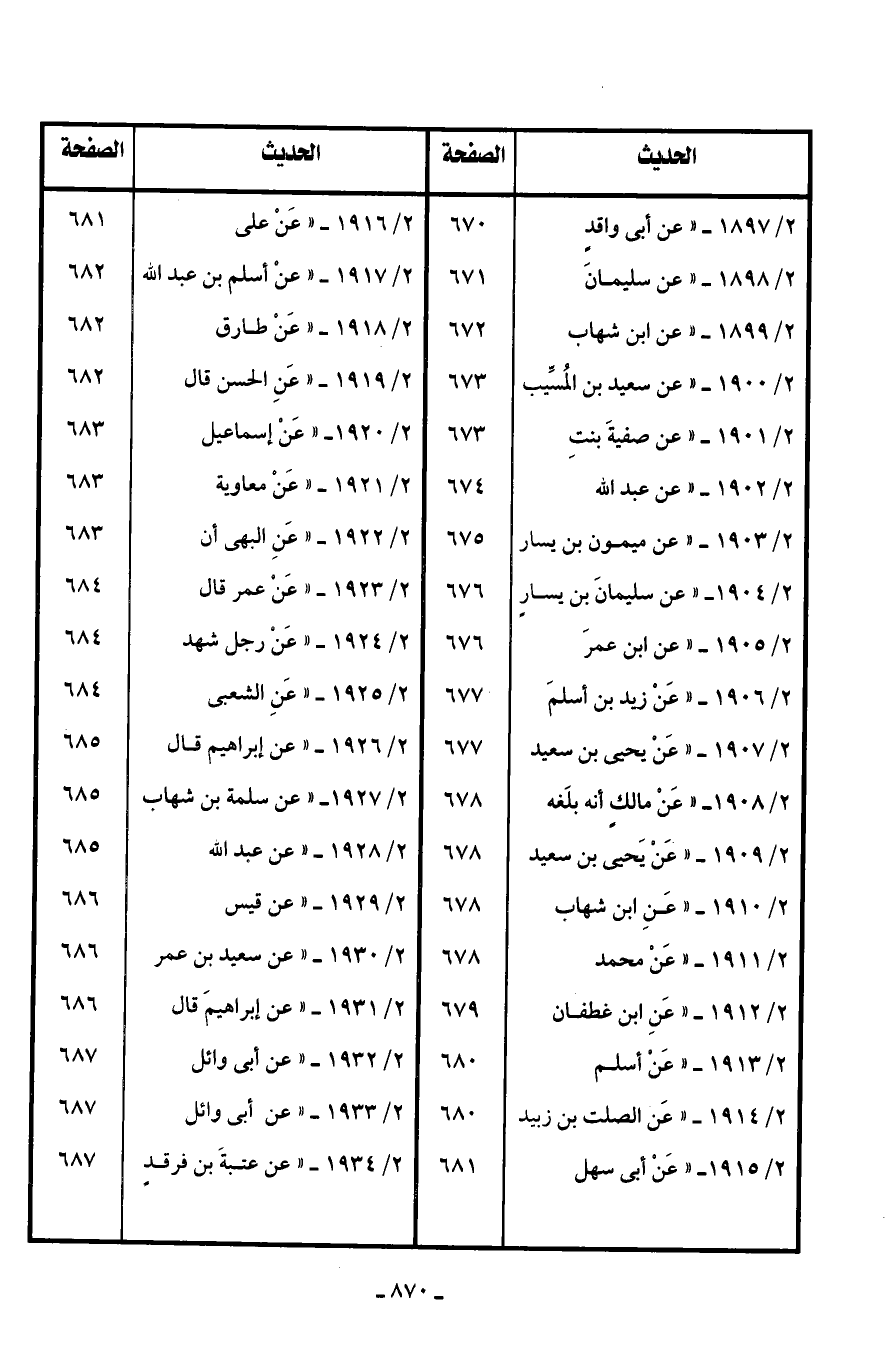 الحديث | الصفحة | الحديث | الصفحة
٢/ ١٨٩٧ ـ « عن أبى واقدٍ | ٦٧٠ | ٢/ ١٩١٦ ـ « عَنْ على | ٦٨١
٢/ ١٨٩٨ ـ « عن سليمـانَ | ٦٧١ | ٢/ ١٩١٧ ـ « عنْ أسلم بن عبد الله | ٦٨٢
٢/ ١٨٩٩ ـ « عن ابن شهاب | ٦٧٢ | ٢/ ١٩١٨ ـ « عَنْ طـارق | ٦٨٢
٢/ ١٩٠٠ ـ « عن سعيد بن المُسيِّب | ٦٧٣ | ٢/ ١٩١٩ ـ « عَنِ الحسن قال | ٦٨٢
٢/ ١٩٠١ ـ « عن صفيةَ بنتِ | ٦٧٣ | ٢/ ١٩٢٠ـ « عَنْ إسماعيل | ٦٨٣
٢/ ١٩٠٢ ـ « عن عبد الله | ٦٧٤ | ٢/ ١٩٢١ ـ « عَنْ معاوية | ٦٨٣
٢/ ١٩٠٣ ـ « عن ميمـون بن يسار | ٦٧٥ | ٢/ ١٩٢٢ ـ « عَنِ البهى أن | ٦٨٣
٢/ ١٩٠٤ـ « عن سليمانَ بن يسـارٍ | ٦٧٦ | ٢/ ١٩٢٣ ـ « عَنْ عمر قال | ٦٨٤
٢/ ١٩٠٥ ـ « عن ابن عمرَ | ٦٧٦ | ٢/ ١٩٢٤ ـ « عَنْ رجل شهد | ٦٨٤
٢/ ١٩٠٦ ـ « عَنْ زيد بن أسلمَ | ٦٧٧ | ٢/ ١٩٢٥ ـ « عَنِ الشعبى | ٦٨٤
٢/ ١٩٠٧ ـ « عَنْ يحيى بن سعيد | ٦٧٧ | ٢/ ١٩٢٦ ـ « عن إبراهيم قـال | ٦٨٥
٢/ ١٩٠٨ـ « عَنْ مالكٍ أنه بلَغه | ٦٧٨ | ٢/ ١٩٢٧ـ « عن سلمة بن شهاب | ٦٨٥
٢/ ١٩٠٩ ـ « عَنْ يَحيى بن سعيد | ٦٧٨ | ٢/ ١٩٢٨ ـ « عن عبد الله | ٦٨٥
٢/ ١٩١٠ ـ « عَـنِ ابن شهاب | ٦٧٨ | ٢/ ١٩٢٩ ـ « عن قيس | ٦٨٦
٢/ ١٩١١ ـ « عَنْ محمد | ٦٧٨ | ٢/ ١٩٣٠ ـ « عن سعيد بن عمر | ٦٨٦
٢/ ١٩١٢ ـ « عَنِ ابن غطفـان | ٦٧٩ | ٢/ ١٩٣١ ـ « عن إبراهيمَ قال | ٦٨٦
٢/ ١٩١٣ ـ « عَنْ أسلـم | ٦٨٠ | ٢/ ١٩٣٢ ـ « عن أبى وائل | ٦٨٧
٢/ ١٩١٤ ـ « عَنِ الصلت بن زبيد | ٦٨٠ | ٢/ ١٩٣٣ ـ « عن أبى وائل | ٦٨٧
٢/ ١٩١٥ـ « عَنْ أبى سهل | ٦٨١ | ٢/ ١٩٣٤ ـ « عن عتبةَ بن فرقـدٍ | ٦٨٧
ـ ٨٧٠ ـ